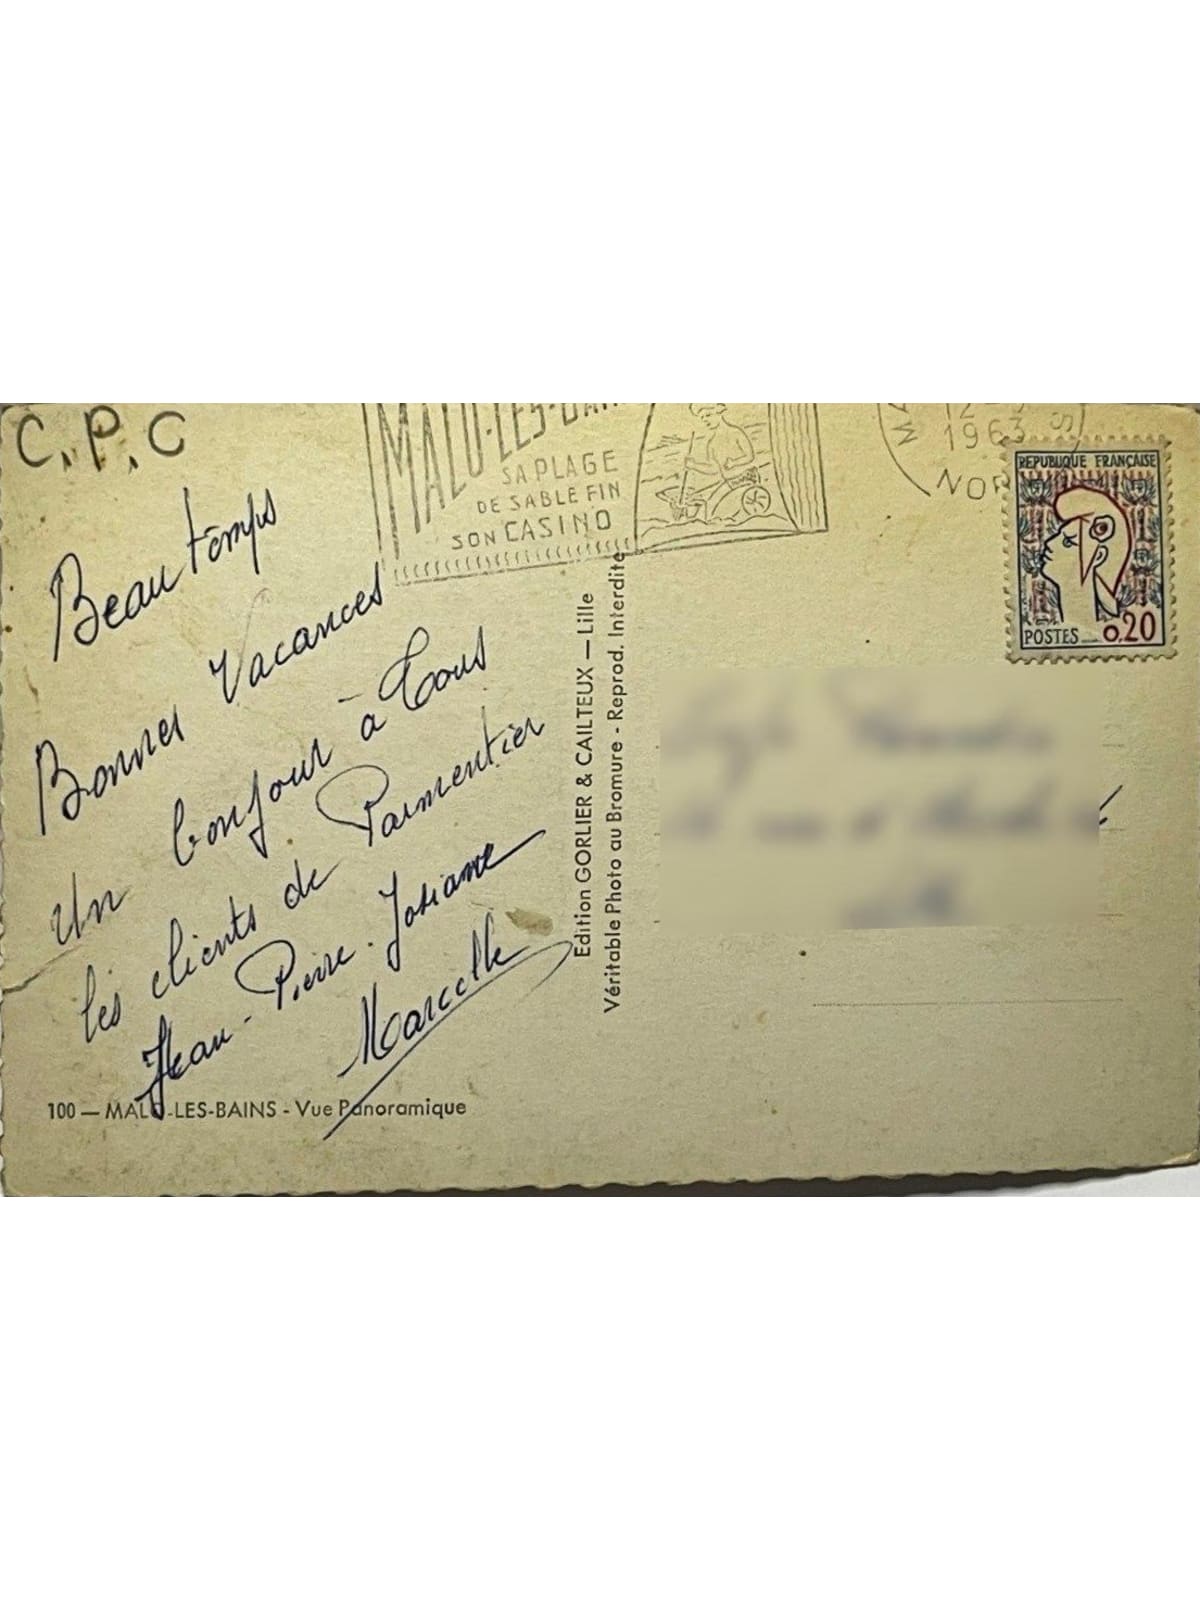 C.P.C
Beau temps
Bonnes Vacances
Un bonjour à Tous
les clients de Parmentier
Jean-Pierre-Josiane
Marcelle
100 — MALO-LES-BAINS - Vue Panoramique
MALO-LES-BAINS
SA PLAGE
DE SABLE FIN
SON CASINO
Edition GORLIER & CAILTEUX — Lille
Véritable Photo au Bromure - Reprod. Interdite
12
1963
NOR
REPUBLIQUE FRANÇAISE
POSTES 0,20